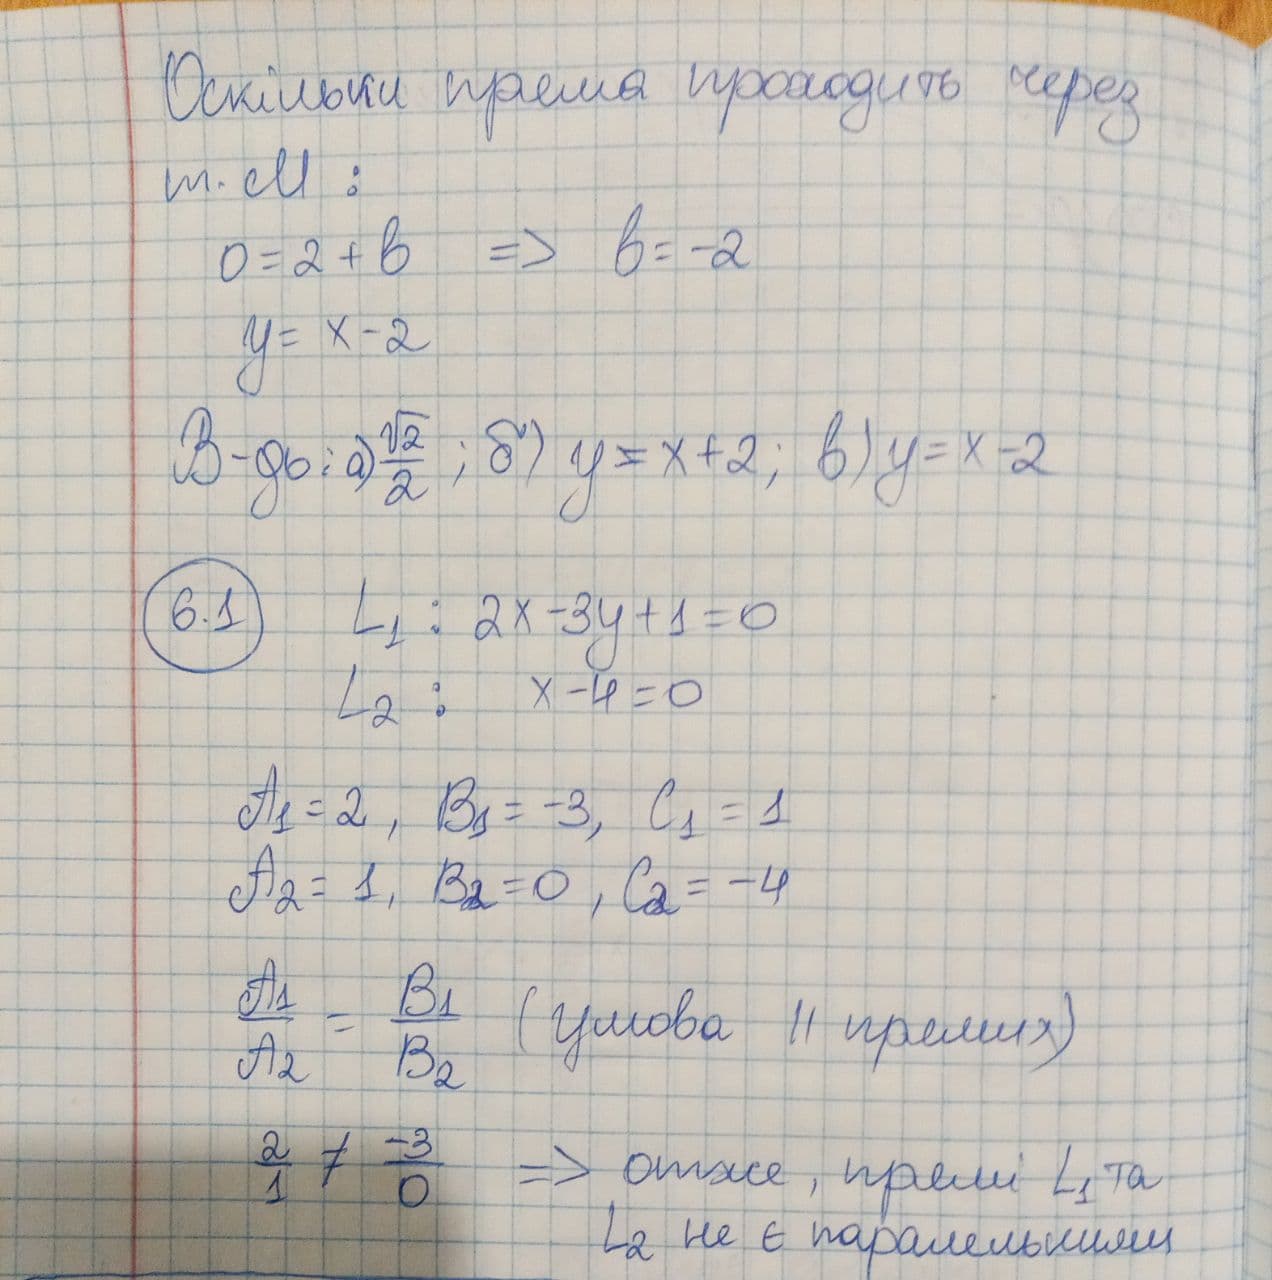 Оскільки пряма проходить через
т. M :
0 = 2 + b => b = -2
y = x - 2
В-дь: а) √2/2 ; б) y = x + 2 ; в) y = x - 2
6.1 L₁ : 2x - 3y + 1 = 0
L₂ : x - 4 = 0
A₁ = 2 , B₁ = -3, C₁ = 1
A₂ = 1, B₂ = 0 , C₂ = -4
A₁/A₂ = B₁/B₂ (умова || прямих)
2/1 ≠ -3/0 => отже, прямі L₁ та
L₂ не є паралельними